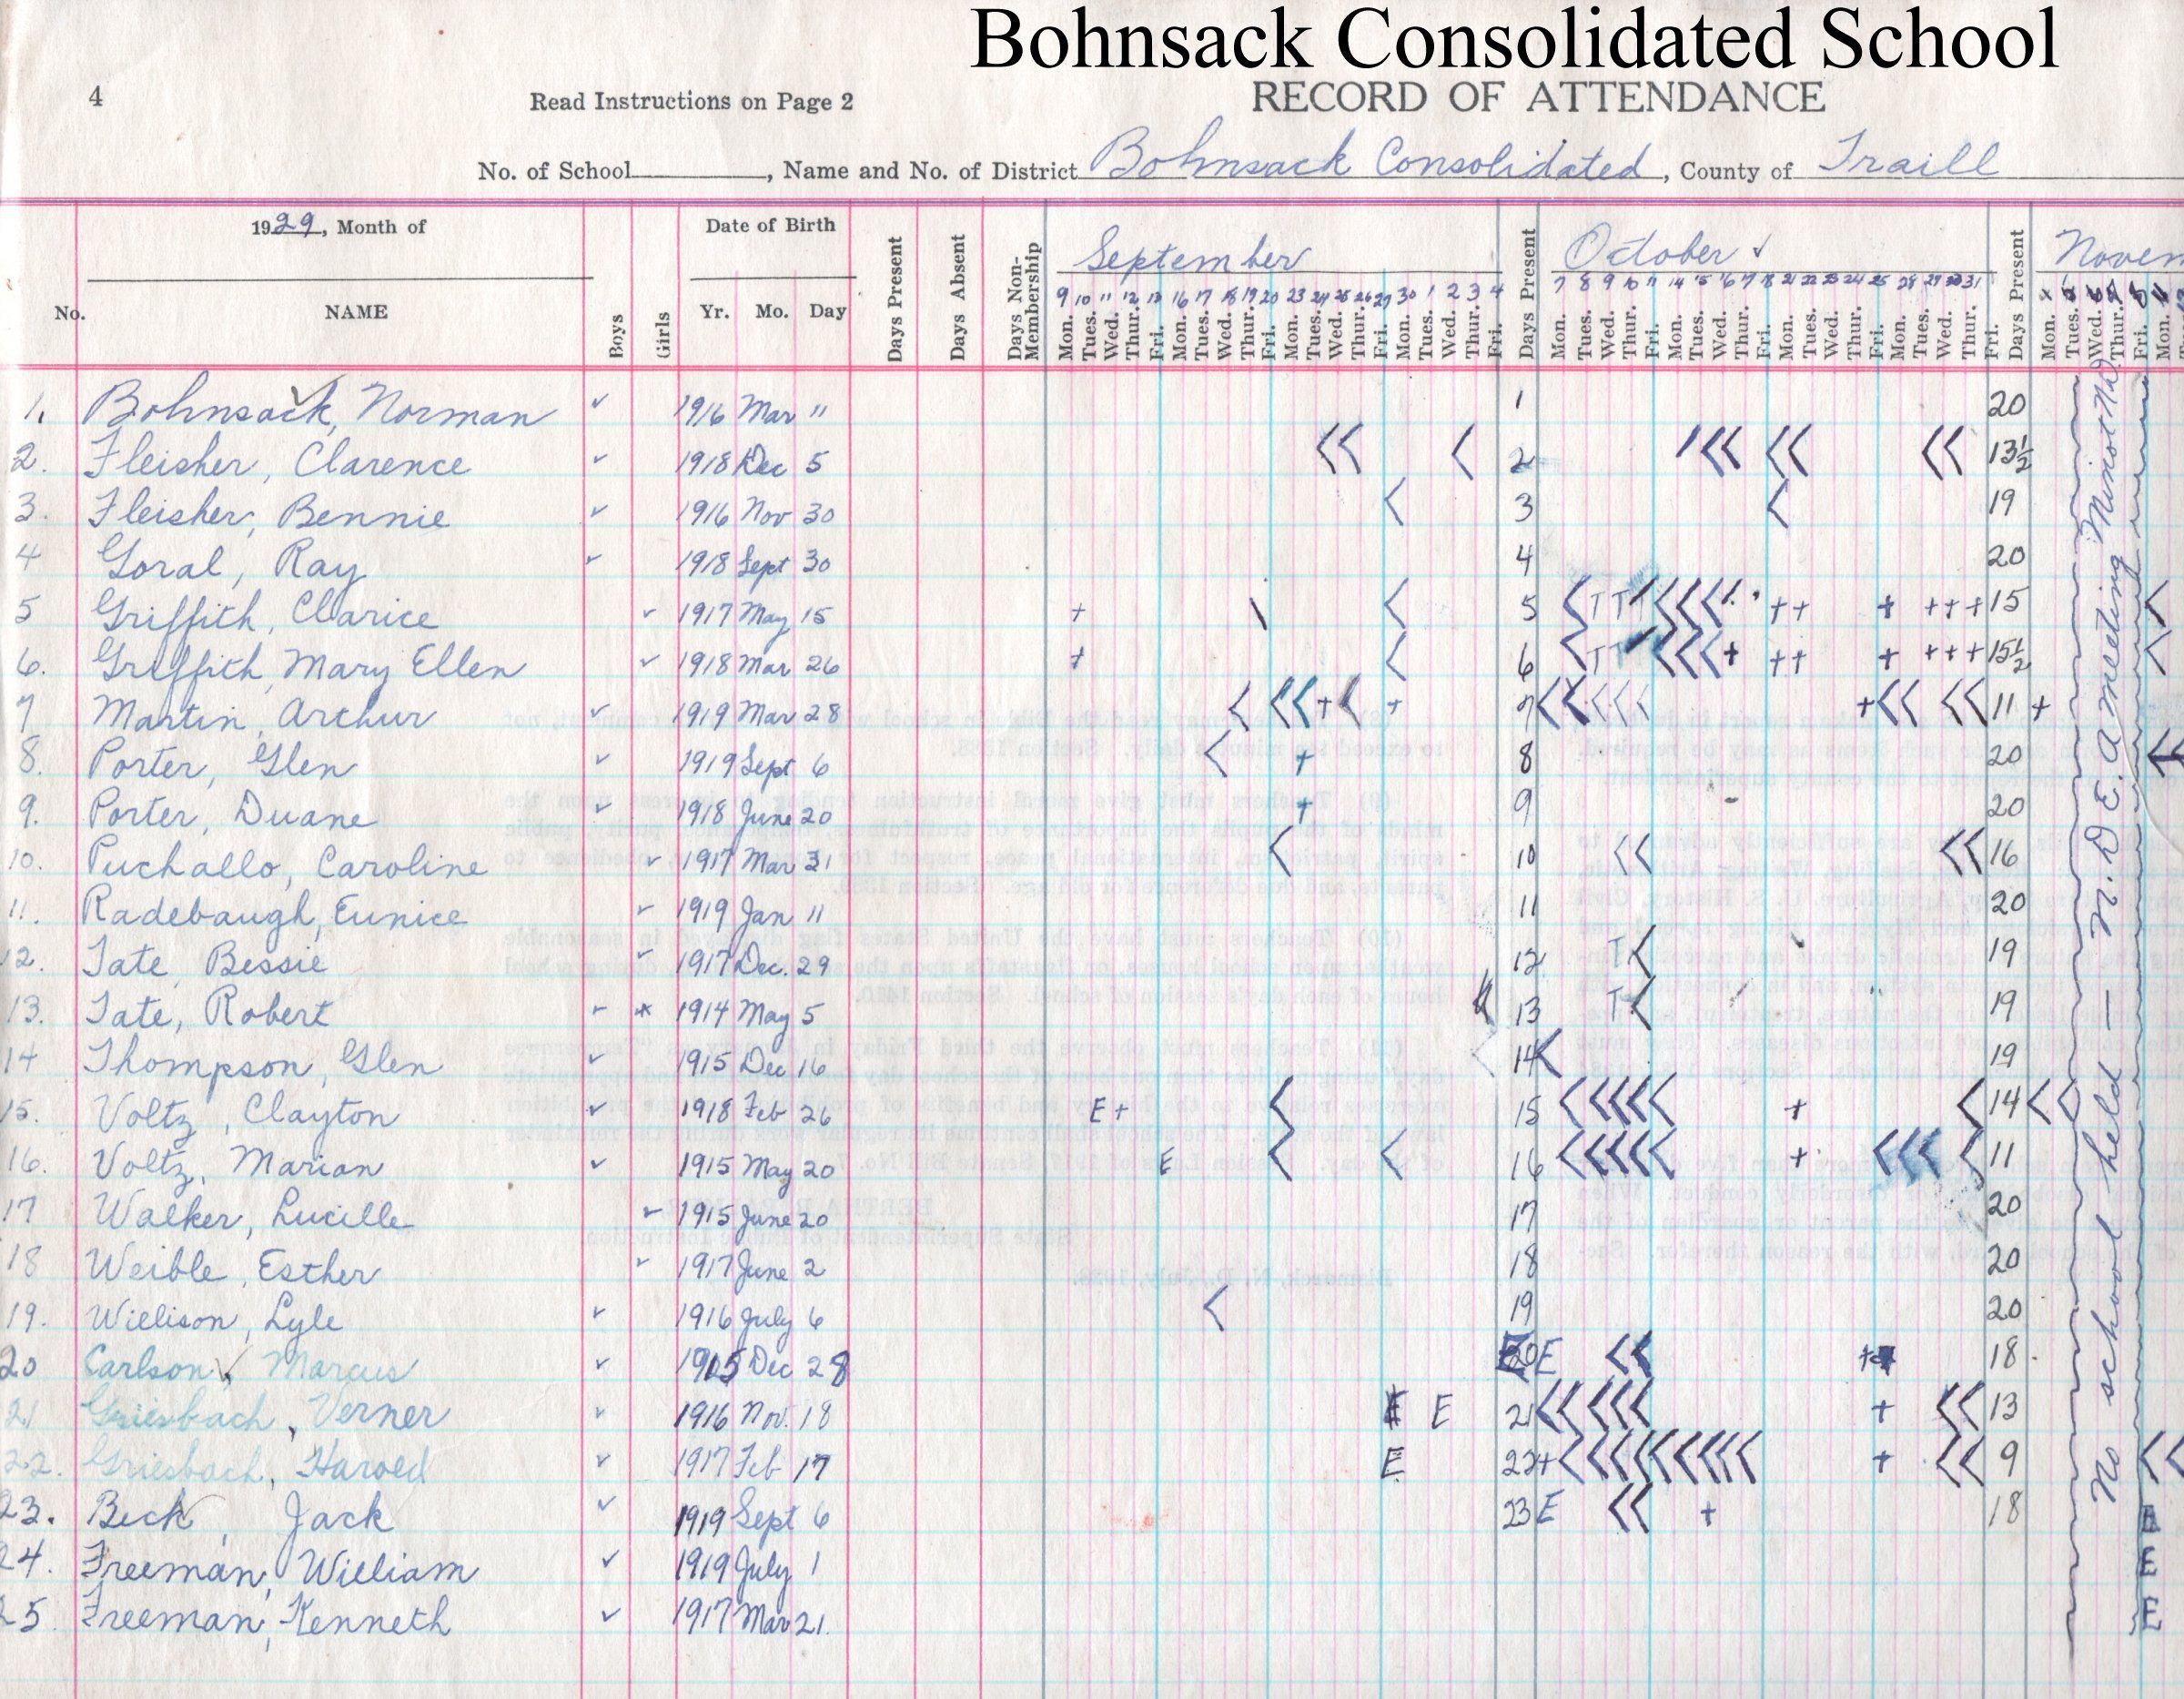 Bohnsack Consolidated School
4 Read Instructions on Page 2 RECORD OF ATTENDANCE
No. of School , Name and No. of District Bohnsack Consolidated , County of Traill
1929, Month of Date of Birth September October ✓ Novem
No. NAME Boys Girls Yr. Mo. Day Days Present Days Absent Days Non-Membership
9 10 11 12 13 16 17 18 19 20 23 24 25 26 27 30 1 2 3 4 Days Present 7 8 9 10 11 14 15 16 17 18 21 22 23 24 25 28 29 30 31 Days Present
Mon. Tues. Wed. Thur. Fri. Mon. Tues. Wed. Thur. Fri. Mon. Tues. Wed. Thur. Fri. Mon. Tues. Wed. Thur. Fri. Mon. Tues. Wed. Thur. Fri. Mon. Tues. Wed. Thur. Fri. Mon. Tues. Wed. Thur. Fri. Mon. Tues. Wed. Thur. Fri. Mon. Tues. Wed. Thur. Fri. Mon.
1. Bohnsack, Norman ✓ 1916 Mar 11 1 20
2. Fleisher, Clarence ✓ 1918 Dec 5 2 13½
3. Fleisher, Bennie ✓ 1916 Nov 30 3 19
4 Goral, Ray ✓ 1918 Sept 30 4 20
5 Griffith, Clarice ✓ 1917 May 15 + 5 T T + + + + + + 15
6. Griffith, Mary Ellen ✓ 1918 Mar 26 + 6 T T + + + + + + + 15½
7 Martin, Arthur ✓ 1919 Mar 28 + + 7 + 11 +
8. Porter, Glen ✓ 1919 Sept 6 + 8 20
9. Porter, Duane ✓ 1918 June 20 + 9 20
10. Puchallo, Caroline ✓ 1917 Mar 31 10 16
11. Radebaugh, Eunice ✓ 1919 Jan 11 11 20
12. Tate, Bessie ✓ 1917 Dec. 29 12 T 19
13. Tate, Robert ✓ 1914 May 5 13 T 19
14 Thompson, Glen ✓ 1915 Dec 16 14 19
15. Voltz, Clayton ✓ 1918 Feb 26 E + 15 + 14
16. Voltz, Marian ✓ 1915 May 20 E 16 + 11
17 Walker, Lucille ✓ 1915 June 20 17 20
18 Weible, Esther ✓ 1917 June 2 18 20
19. Willison, Lyle ✓ 1916 July 6 19 20
20 Carlson, Marcus ✓ 1915 Dec 28 20 E + 18
21 Griesbach, Verner ✓ 1916 Nov. 18 E 21 + 13
22. Griesbach, Harold ✓ 1917 Feb 17 E 22 + + 9
23. Beck, Jack ✓ 1919 Sept 6 23 E + 18
24. Freeman, William ✓ 1919 July 1 E
25. Freeman, Kenneth ✓ 1917 Mar 21. E
No school held — N. D. E. A meeting Minot N.D.